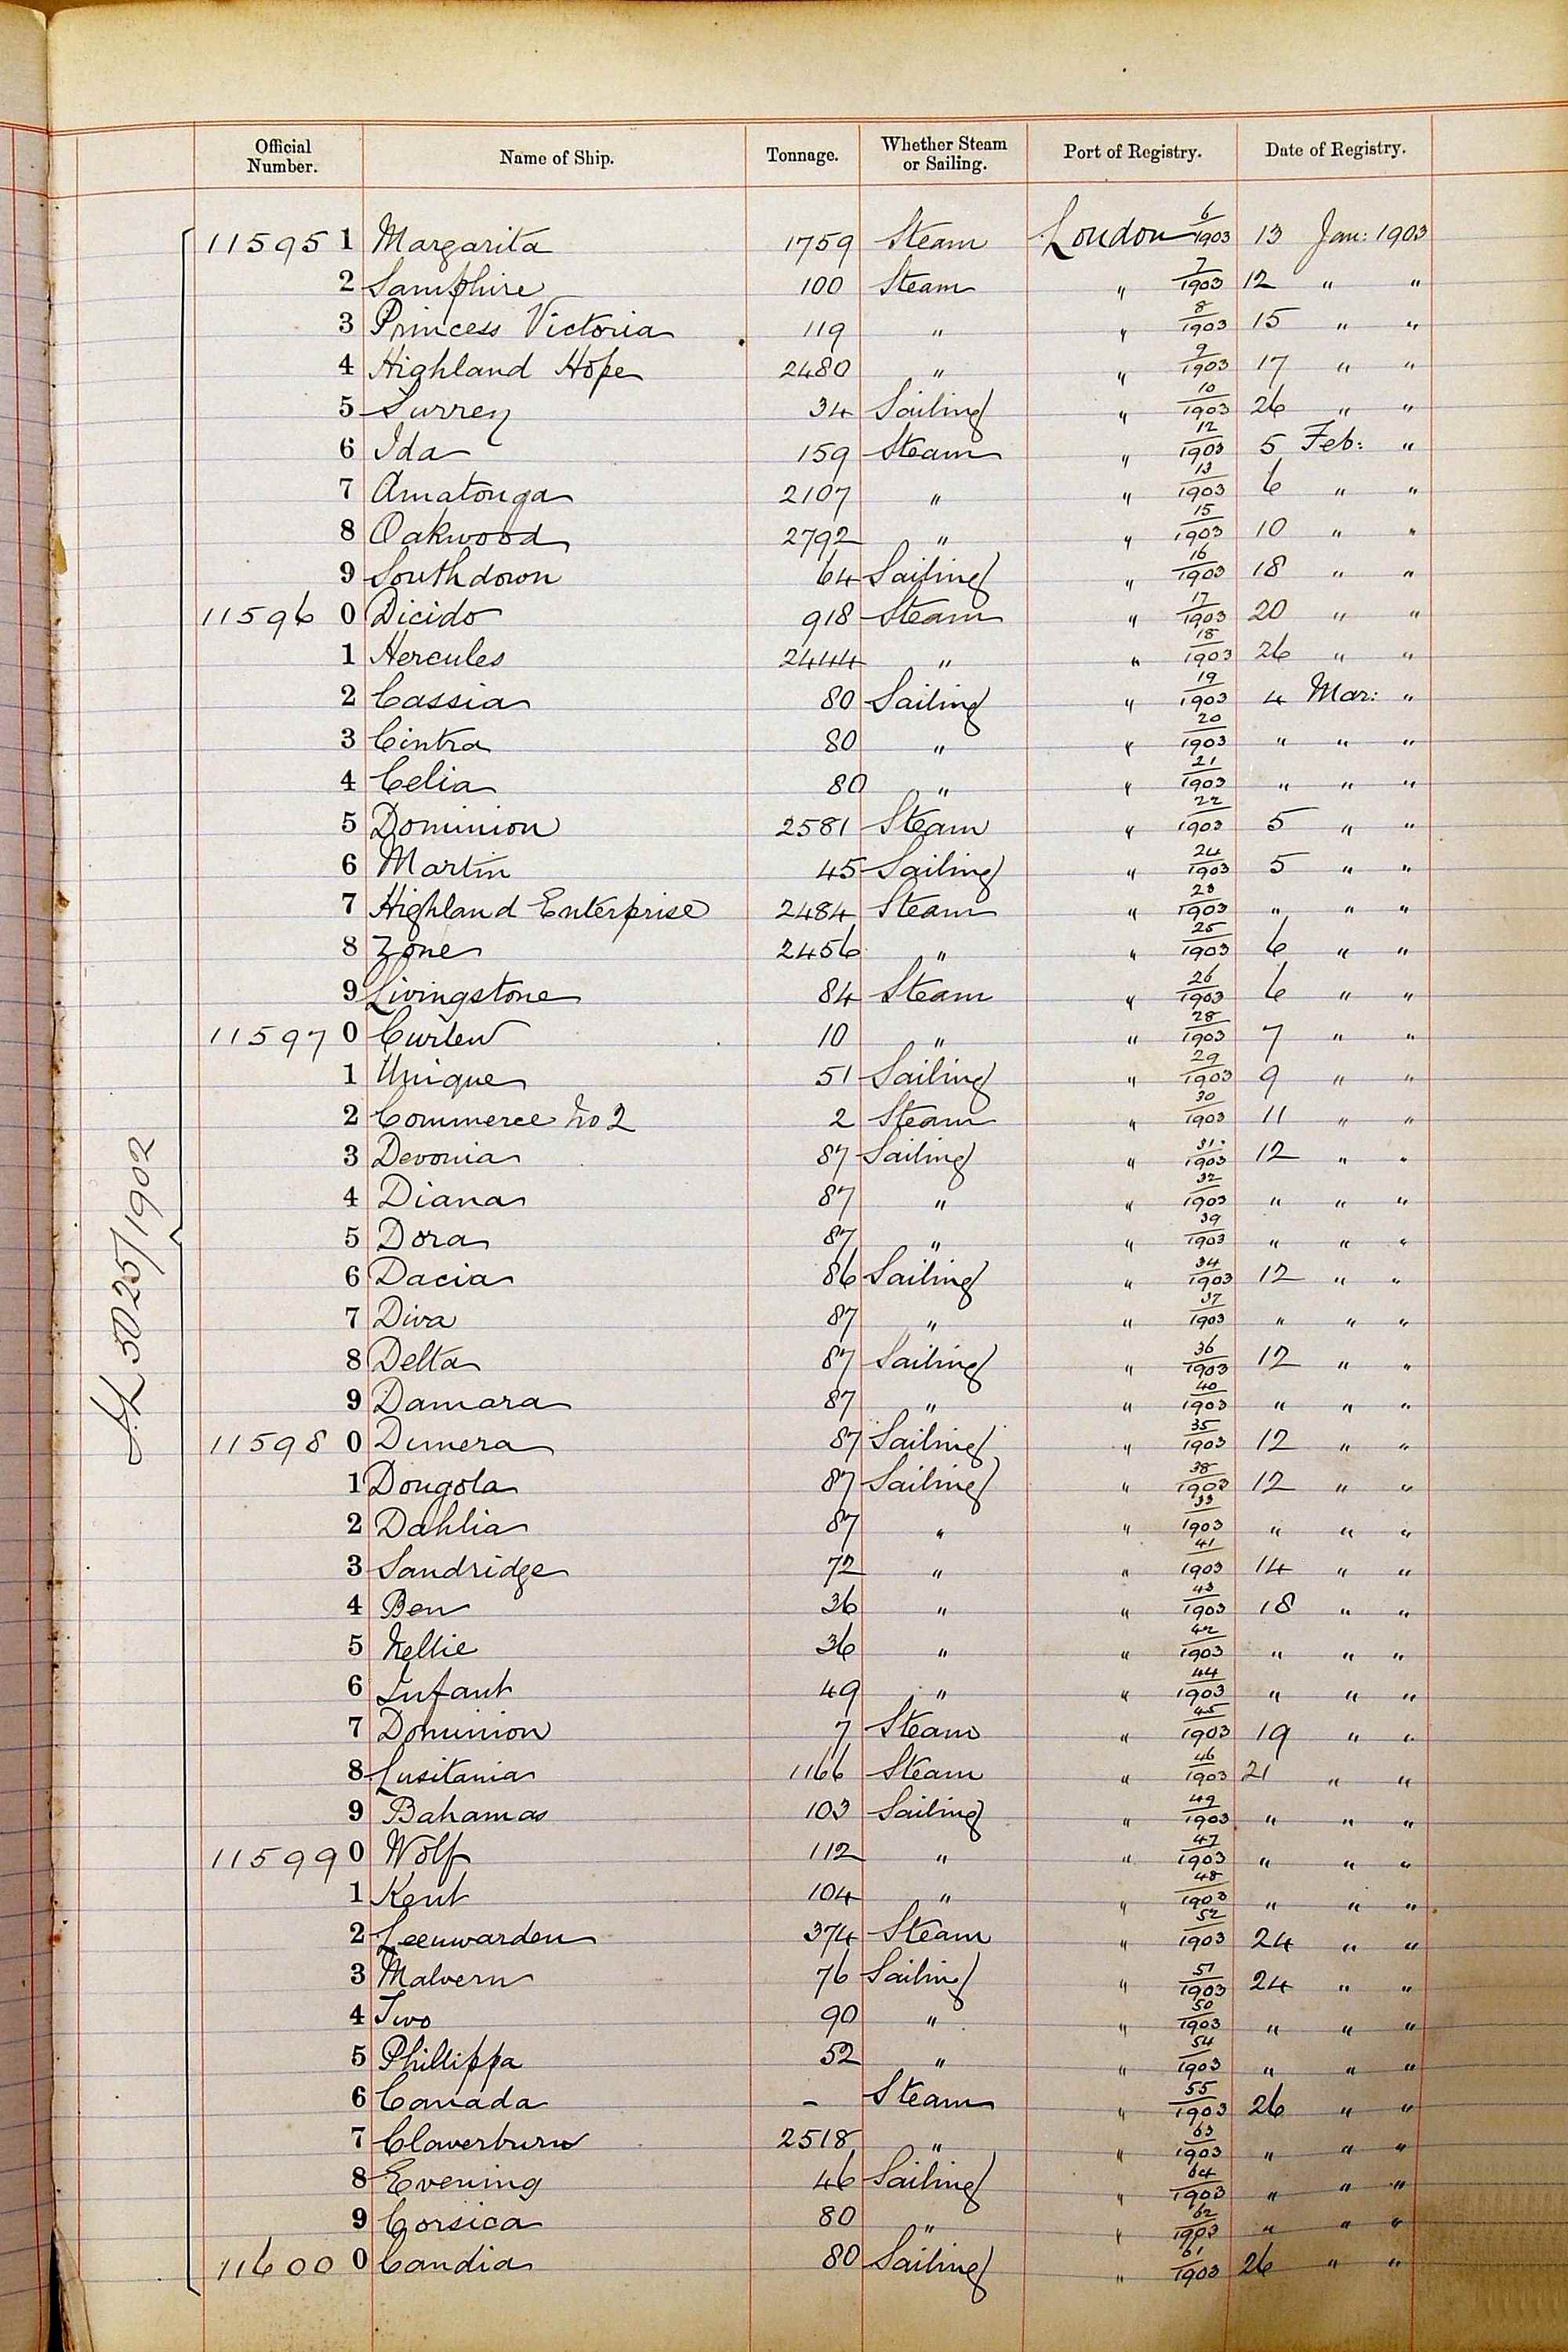 Official Number. Name of Ship. Tonnage. Whether Steam or Sailing. Port of Registry. Date of Registry.
11595 1 Margarita 1759 Steam London 6/1903 13 Jan: 1903
2 Samphire 100 Steam " 7/1903 12 " "
3 Princess Victoria 119 " " 8/1903 15 " "
4 Highland Hope 2480 " " 9/1903 17 " "
5 Surrey 34 Sailing " 10/1903 26 " "
6 Ida 159 Steam " 12/1903 5 Feb: "
7 Amatonga 2107 " " 13/1903 6 " "
8 Oakwood 2792 " " 15/1903 10 " "
9 Southdown 64 Sailing " 16/1903 18 " "
11596 0 Dicido 918 Steam " 17/1903 20 " "
1 Hercules 2444 " " 18/1903 26 " "
2 Cassia 80 Sailing " 19/1903 4 Mar: "
3 Cintra 80 " " 20/1903 " " "
4 Celia 80 " " 21/1903 " " "
5 Dominion 2581 Steam " 22/1903 5 " "
6 Martin 45 Sailing " 24/1903 5 " "
7 Highland Enterprise 2484 Steam " 23/1903 " " "
8 Zone 2456 " " 25/1903 6 " "
9 Livingstone 84 Steam " 26/1903 6 " "
11597 0 Curlew 10 " " 28/1903 7 " "
1 Unique 51 Sailing " 29/1903 9 " "
2 Commerce No 2 2 Steam " 30/1903 11 " "
3 Devonia 87 Sailing " 31/1903 12 " "
4 Diana 87 " " 32/1903 " " "
5 Dora 87 " " 39/1903 " " "
6 Dacia 86 Sailing " 34/1903 12 " "
7 Diva 87 " " 37/1903 " " "
8 Delta 87 Sailing " 36/1903 12 " "
9 Damara 87 " " 40/1903 " " "
11598 0 Dimera 87 Sailing " 35/1903 12 " "
1 Dongola 87 Sailing " 38/1903 12 " "
2 Dahlia 87 " " 33/1903 " " "
3 Sandridge 72 " " 41/1903 14 " "
4 Ben 36 " " 43/1903 18 " "
5 Nellie 36 " " 42/1903 " " "
6 Infant 49 " " 44/1903 " " "
7 Dominion 7 Steam " 45/1903 19 " "
8 Lusitania 1166 Steam " 46/1903 21 " "
9 Bahamas 103 Sailing " 49/1903 " " "
11599 0 Wolf 112 " " 47/1903 " " "
1 Kent 104 " " 48/1903 " " "
2 Leeuwarden 374 Steam " 52/1903 24 " "
3 Malvern 76 Sailing " 51/1903 24 " "
4 Two 90 " " 50/1903 " " "
5 Phillippa 52 " " 54/1903 " " "
6 Canada - Steam " 55/1903 26 " "
7 Claverburn 2518 " " 63/1903 " " "
8 Evening 46 Sailing " 64/1903 " " "
9 Corsica 80 " " 62/1903 " " "
11600 0 Candia 80 Sailing " 61/1903 26 " "
5025/1902